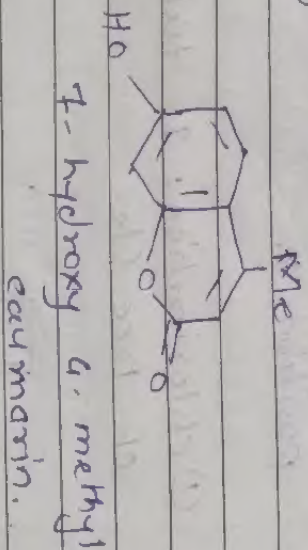 HO
Me
O
O
7- hydroxy 4- methyl
coumarin.